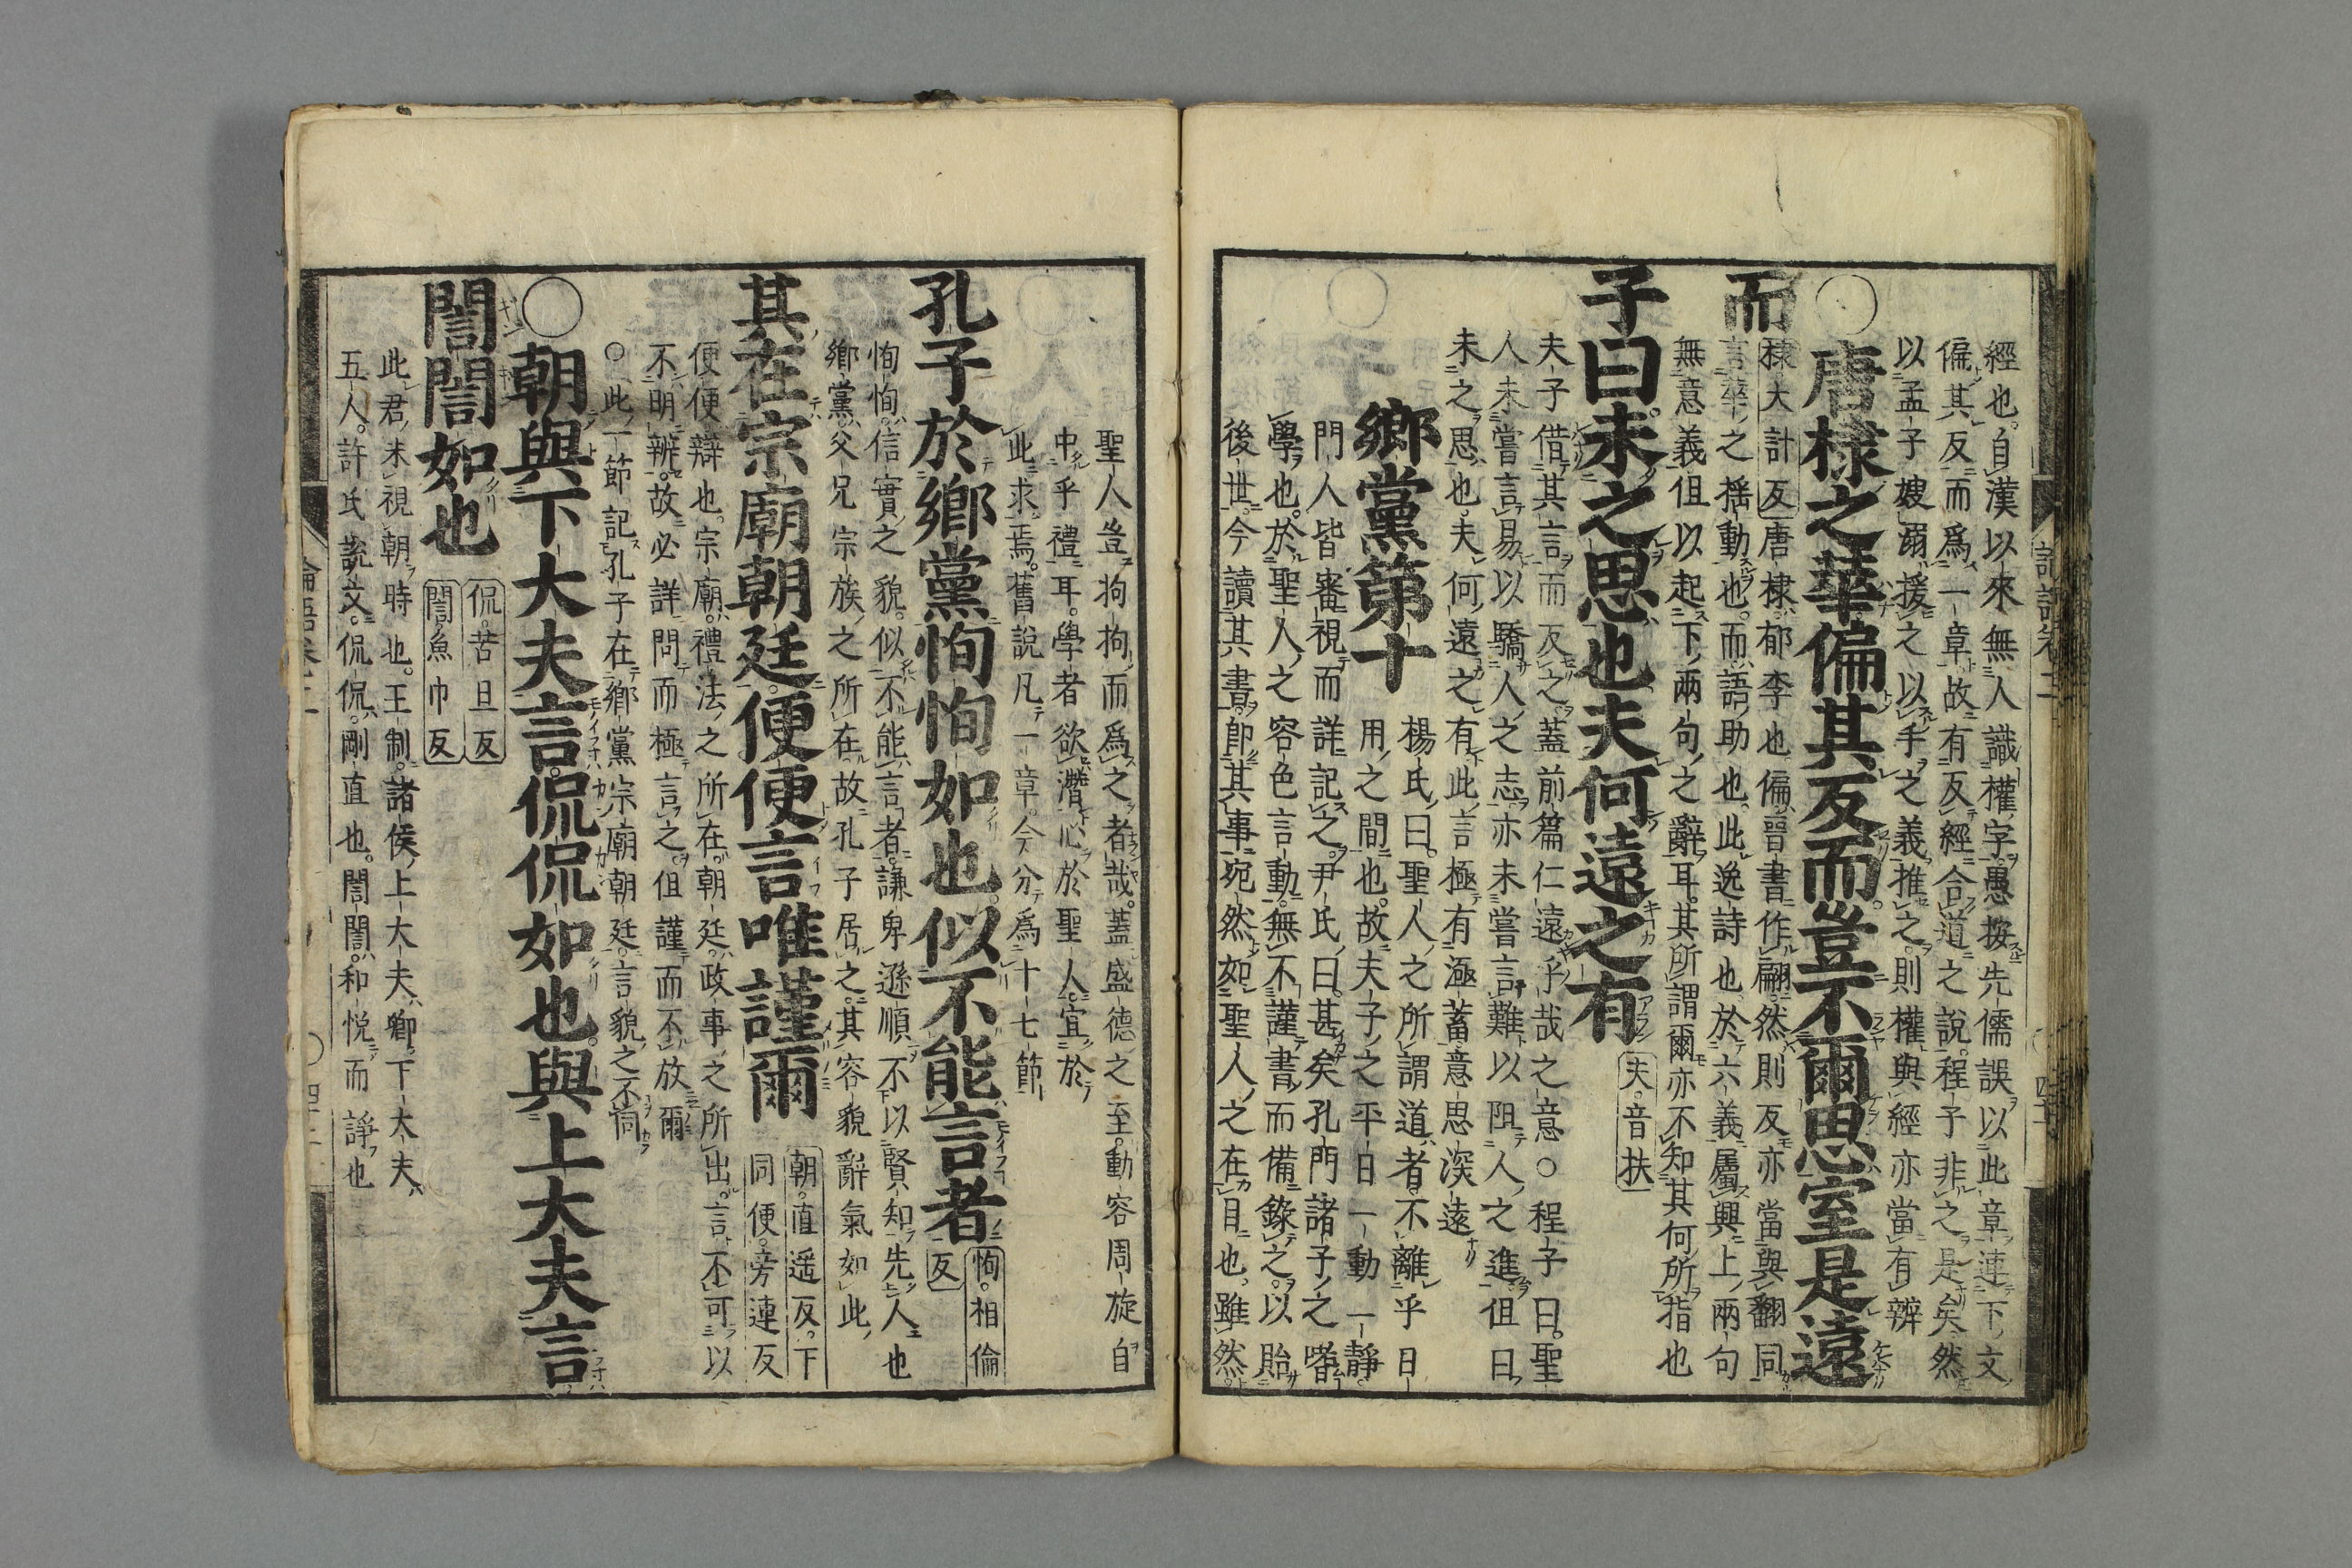 經也。自漢以來無人識權字。愚按先儒誤以此章連下文
偏其反而爲一章。故有反經合道之說。程子非之是矣。然
以孟子嫂溺援之以手之義推之。則權與經亦當有辨
○唐棣之華偏其反而豈不爾思室是遠
而 棣。大計反 唐棣。郁李也。偏。晉書作翩。然則反亦當與翻同。
言華之搖動也。而。語助也。此逸詩也。於六義屬興。上兩句
無意義。但以起下兩句之辭耳。其所謂爾。亦不知其何所指也
子曰未之思也夫何遠之有 夫。音扶
夫子借其言而反之。蓋前篇仁遠乎哉之意○程子曰。聖
人未嘗言易以驕人之志。亦未嘗言難以阻人之進。但曰
未之思也。夫何遠之有。此言極有涵蓄。意思深遠
鄉黨第十
楊氏曰。聖人之所謂道者。不離乎日
用之間也。故夫子之平日一動一靜。
門人皆審視而詳記之。尹氏曰。甚矣孔門諸子之嗜
學也。於聖人之容色言動。無不謹書而備錄之。以貽
後世。今讀其書。卽其事。宛然如聖人之在目也。雖然。
聖人豈拘拘而爲之者哉。蓋盛德之至。動容周旋自
中乎禮耳。學者欲潛心於聖人。宜於
此求焉。舊說凡一章。今分爲十七節
孔子於鄉黨恂恂如也似不能言者 恂。相倫反
恂恂。信實之貌。似不能言者。謙卑遜順不以賢知先人也
鄉黨。父兄宗族之所在。故孔子居之。其容貌辭氣如此
其在宗廟朝廷便便言唯謹爾 朝。直遥反。下同 便。旁連反
便便。辯也。宗廟。禮法之所在。朝廷。政事之所出。言不可以
不明辨。故必詳問而極言之。但謹而不放爾
○此一節。記孔子在鄉黨宗廟朝廷。言貌之不同
○朝與下大夫言侃侃如也與上大夫言
誾誾如也 侃。苦旦反 誾。魚巾反
此君未視朝時也。王制。諸侯上大夫卿。下大夫
五人。許氏說文。侃侃。剛直也。誾誾。和悅而諍也